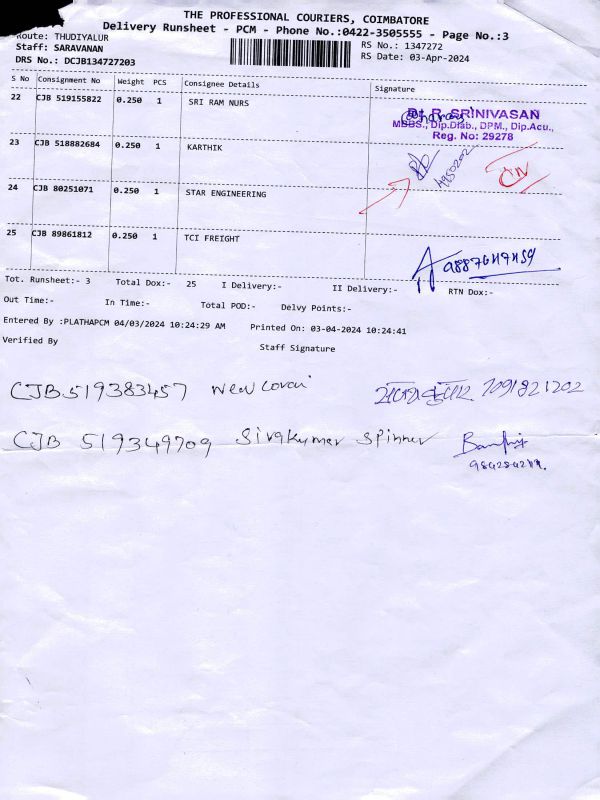 THE PROFESSIONAL COURIERS, COIMBATORE
Delivery Runsheet - PCM - Phone No.:0422-3505555 - Page No.:3
Route: THUDIYALUR RS No.: 1347272
Staff: SARAVANAN RS Date: 03-Apr-2024
DRS No.: DCJB134727203
S No Consignment No Weight PCS Consignee Details Signature
22 CJB 519155822 0.250 1 SRI RAM NURS
Dr. R. SRINIVASAN
MBBS., Dip.Diab., DPM., Dip.Acu.,
Reg. No: 29278
23 CJB 518882684 0.250 1 KARTHIK
24 CJB 80251071 0.250 1 STAR ENGINEERING
25 CJB 89861812 0.250 1 TCI FREIGHT
Tot. Runsheet:- 3 Total Dox:- 25 I Delivery:- II Delivery:- RTN Dox:-
Out Time:- In Time:- Total POD:- Delvy Points:-
Entered By :PLATHAPCM 04/03/2024 10:24:29 AM Printed On: 03-04-2024 10:24:41
Verified By Staff Signature
CJB 519383457 New Covai 7091821202
CJB 519349709 Sivakumar Spinner